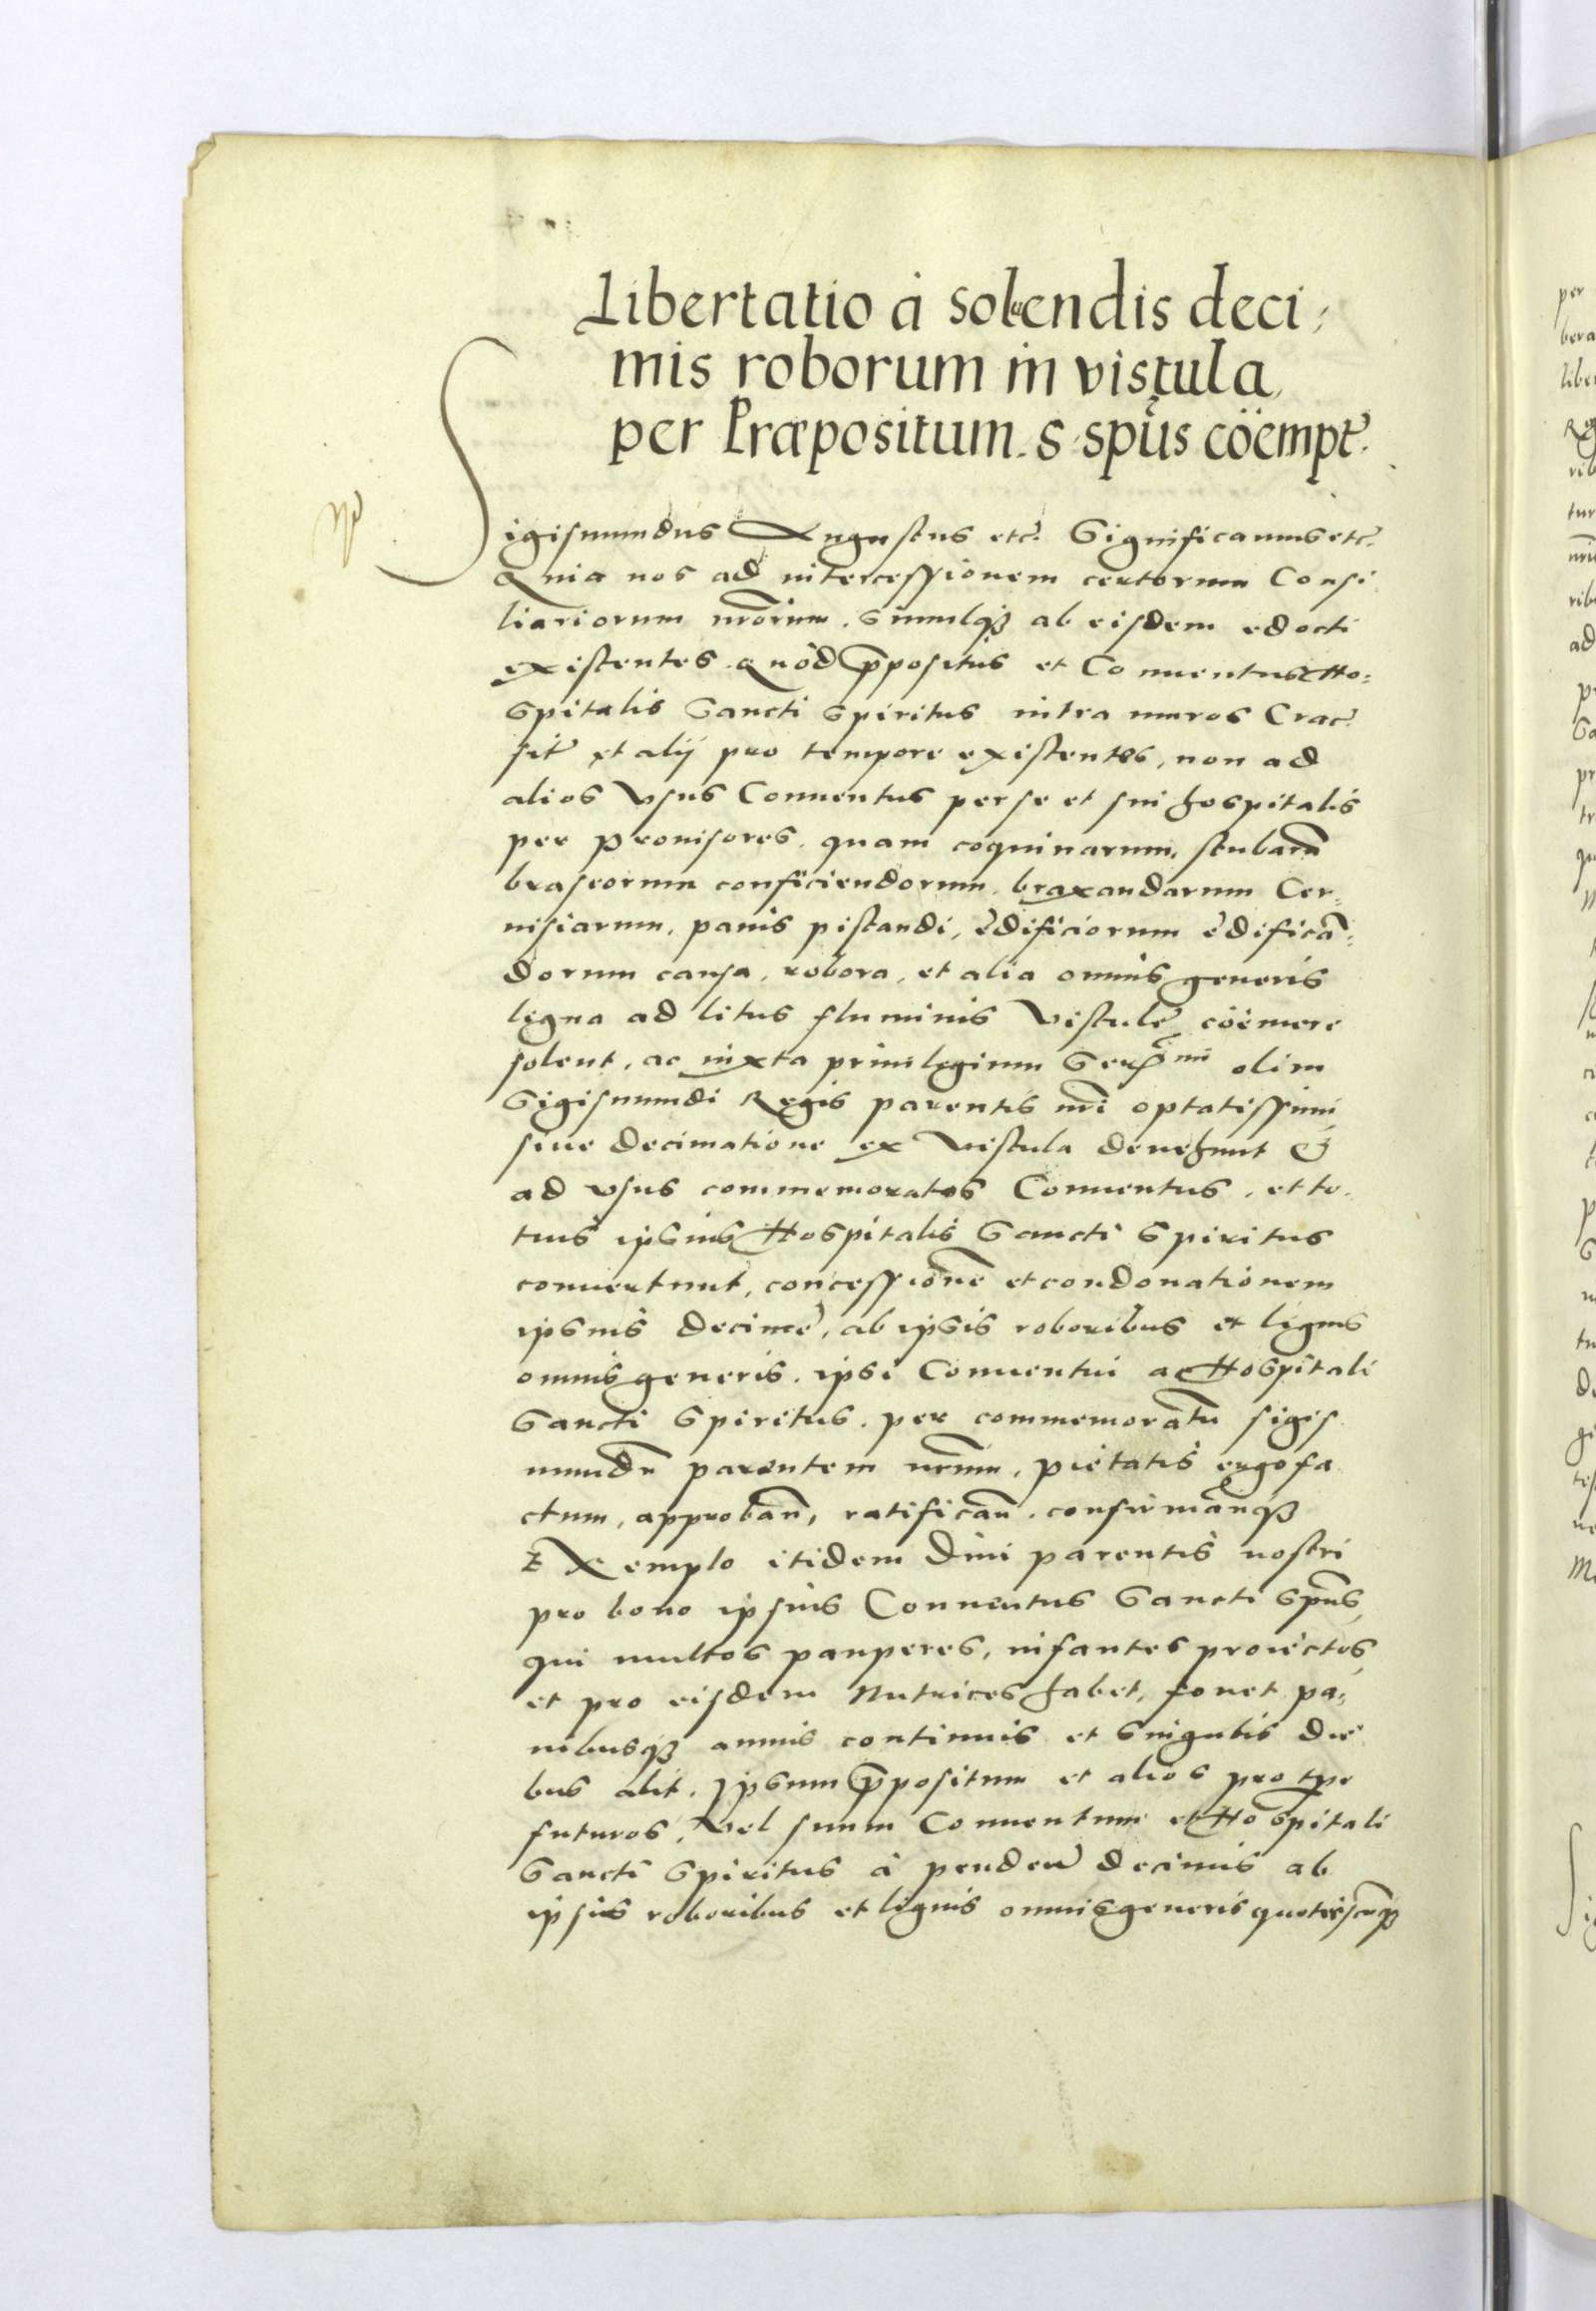 Libertatio à soluendis deci,
mis roborum in vistula
per Præpositum S. spũs cöempt.
Sigismundus Augustus etc. Significamus etc.
Quia nos ad intercessionem certorum Consi
liariorum nrorum. Simulq3 ab eisdem edocti
existentes. quòd ppositus et Conuentus Ho:
Spitalis Sancti Spiritus intra muros Crac.
sit et alij pro tempore existentes, non ad
alios vsus Conuentus per se et sui hospitalis
per prouisores. quam coquinarum, stubarũ
braseorum conficiendorum. braxandarum Cer,
uisiarum, panis pistandi, ędificiorum ędificã,
dorum causa, robora, et alia omnis generis
ligna ad litus fluminis Vistulę cöemere
solent, ac iuxta priuilegium Serᵐⁱ olim
Sigismundi Regis parentis nri optatissimi
siue decimatione ex Vistula deuehunt &
ad vsus commemoratos Conuentus, et to.
tius ipsius Hospitalis Sancti Spiritus
conuertunt, concessionẽ et condonationem
ipsius decimę, ab ipsis roboribus et lignis
omnis generis. ipsi Conuentui ac Hospitali
Sancti Spiritus. per commemoratũ sigis
mundũ parentem nrum, pietatis ergo fa
ctum, approbañ, ratificañ. confirmãnq3
Exemplo itidem Diui parentis nostri
pro bono ipsius Conuentus Sancti Spũs,
qui multos pauperes, infantes proiectos,
et pro eisdem Nutrices habet, fouet pa,
nibusq3 annis continuis et Singulis die
bus alit. Ipsum ppositum et alios pro tpe
futuros, vel suum Conuentum et Hospitali
Sancti Spiritus à penden decimis ab
ipsis roboribus et lignis omnis generis quotiescũq3